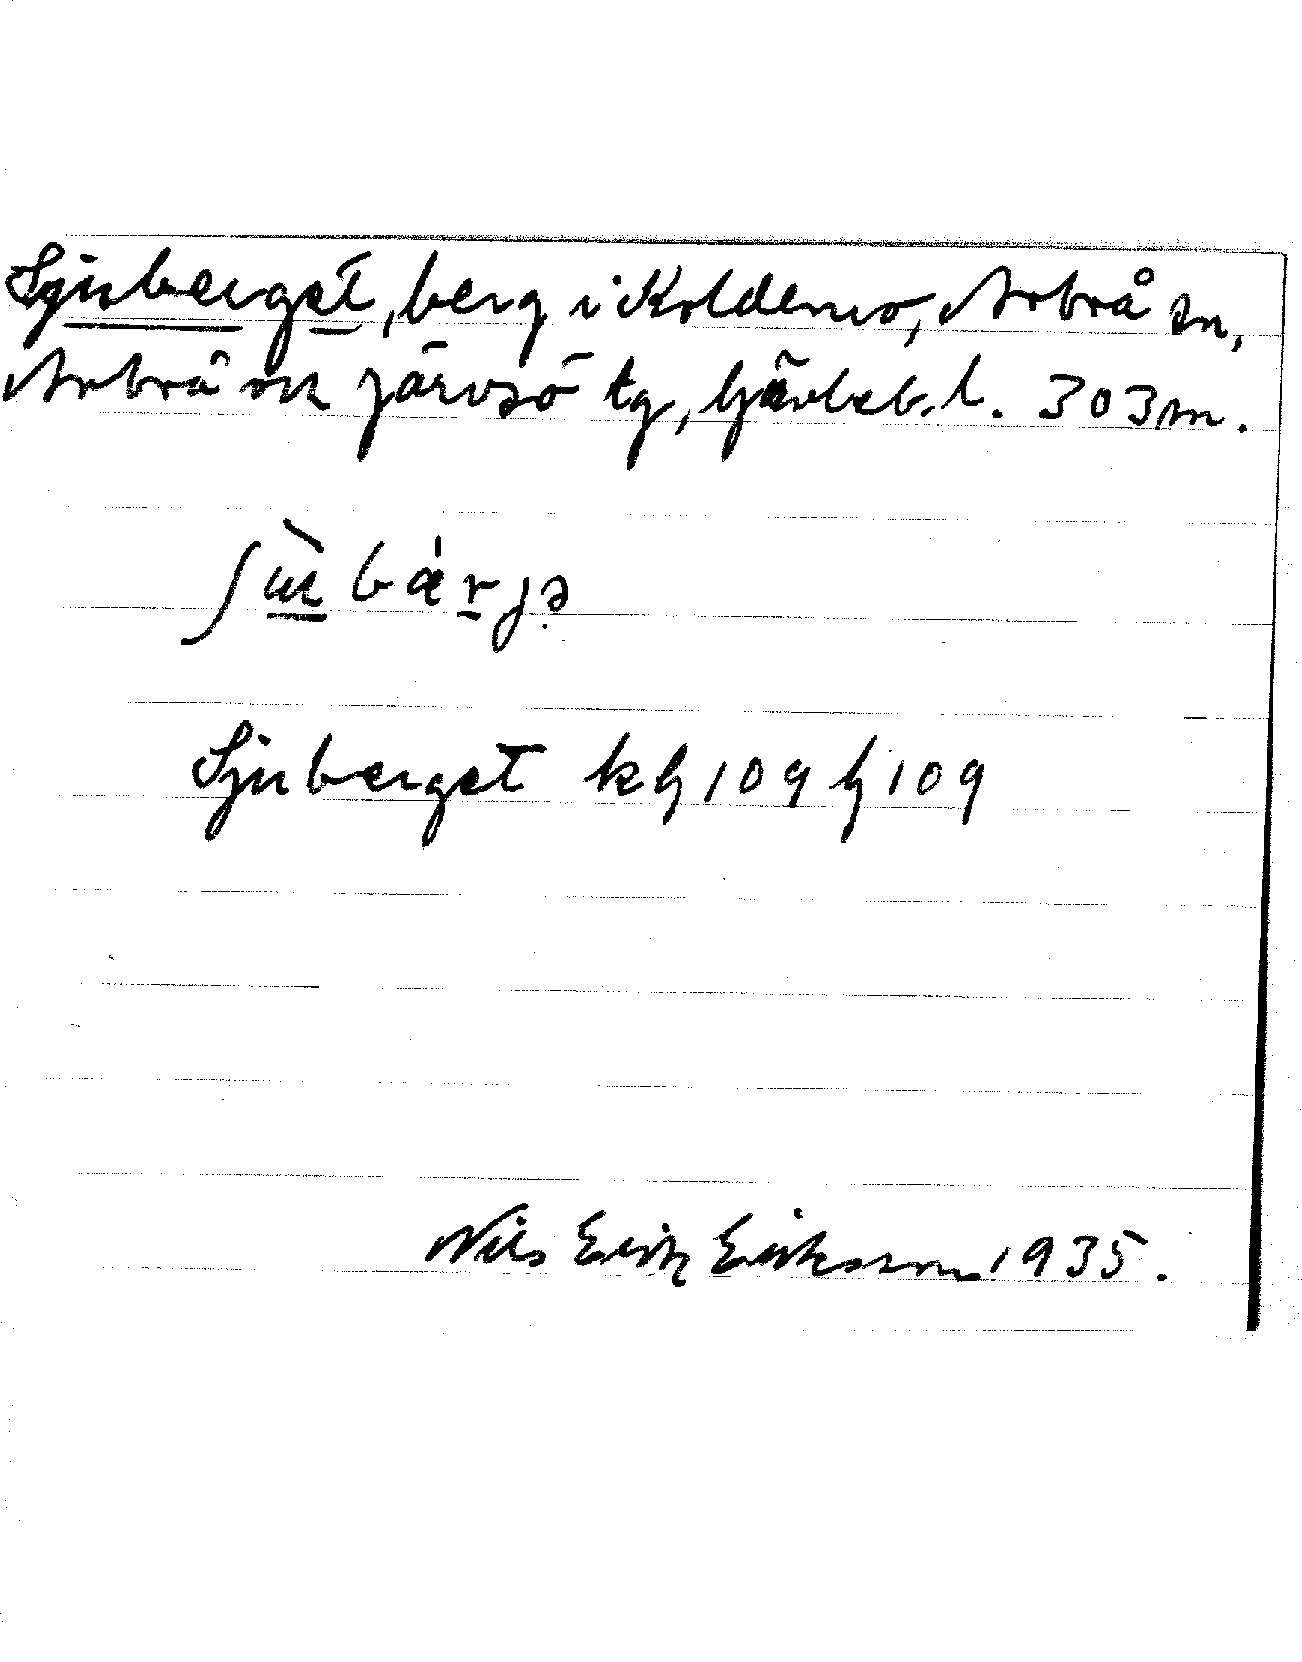 Sjuberget, berg i Koldemo, Arbrå sn,
Arbrå ou Järvsö tg, Gävleb. l. 303 m.
ʃù̠bä́r̠jə
Sjuberget kg 109 G 109
Nils Erik Eriksson 1935.